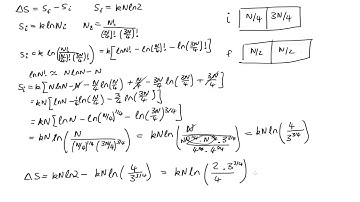 ΔS = S_f - S_i    S_f = kNln2
S_i = klnN_i    N_i = N! / (N/4)!(3N/4)!
i  N/4  3N/4
f  N/2  N/2
S_i = k ln(N! / (N/4)!(3N/4)!) = k[lnN! - ln(N/4)! - ln(3N/4)!]
lnN! ≈ NlnN - N
S_i = k[NlnN - N - N/4 ln(N/4) + N/4 - 3N/4 ln(3N/4) + 3N/4]
= kN[lnN - 1/4 ln(N/4) - 3/4 ln(3N/4)]
= kN[lnN - ln(N/4)^1/4 - ln(3N/4)^3/4]
= kN ln(N / (N/4)^1/4 (3N/4)^3/4) = kN ln(N / N^1/4 · N^3/4 · 3^3/4 / 4^1/4 · 4^3/4) = kN ln(4 / 3^3/4)
ΔS = kNln2 - kNln(4 / 3^3/4) = kNln(2 · 3^3/4 / 4)